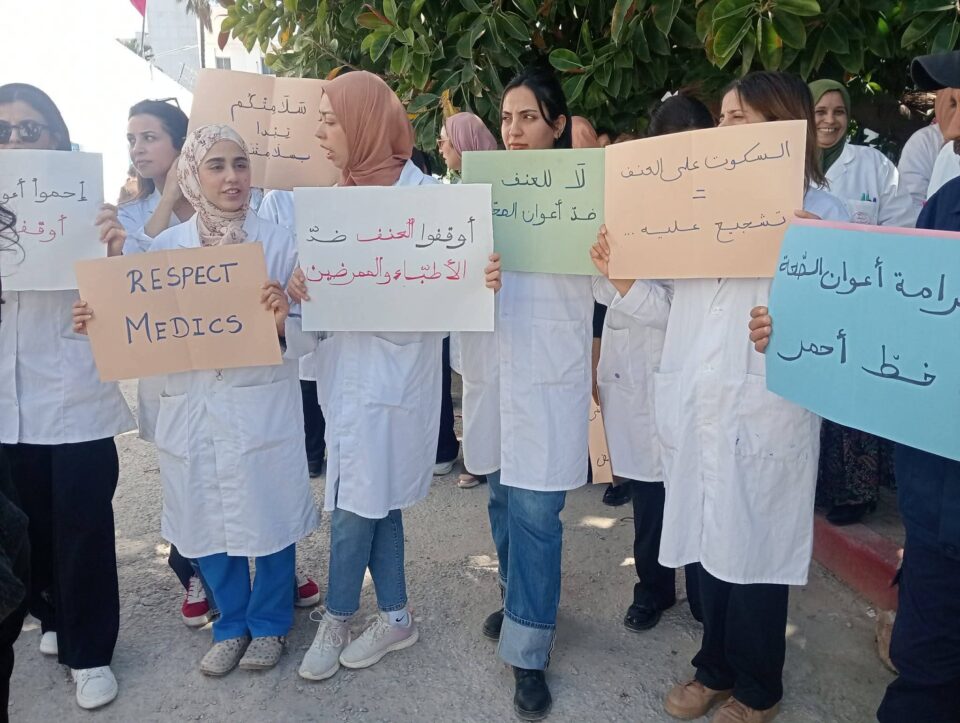 إحموا
أوقفو
سلامتكم
تبدا
بسلامتنا
RESPECT
MEDICS
أوقفوا العنف ضدّ
الأطبّاء والممرضين
لا للعنف
ضدّ أعوان
السكوت على العنف
=
تشجيع عليه ...
رامة أعوان الصّحة
خطّ أحمر